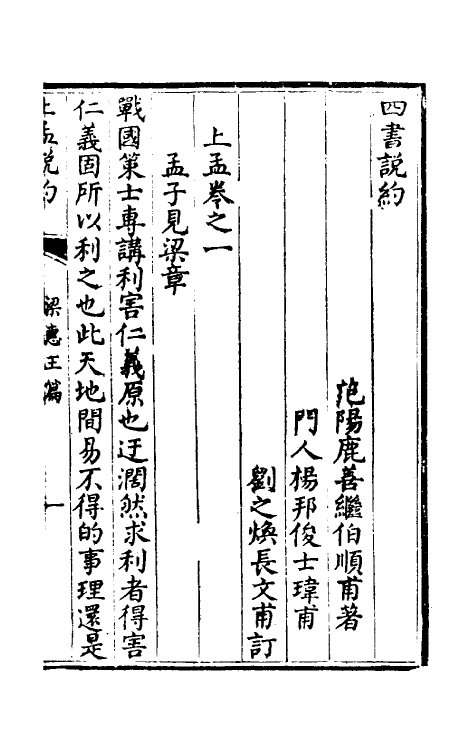 四書説約
范陽鹿善繼伯順甫著
門人楊邦俊士瑋甫
劉之煥長文甫訂
上孟卷之一
孟子見梁章
戰國策士專講利害仁義原也迂濶然求利者得害
仁義固所以利之也此天地間易不得的事理還是
上孟說約
梁惠王篇
一